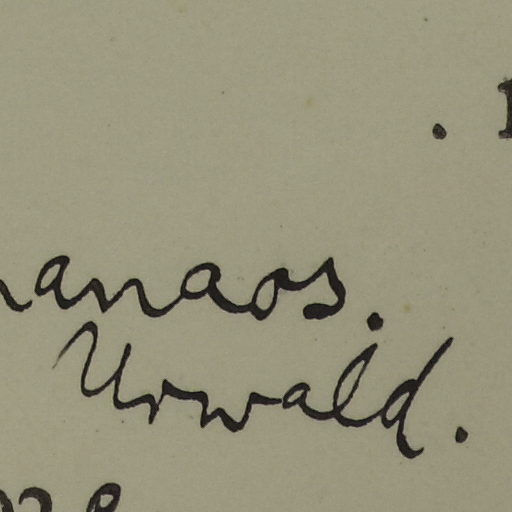 anaos.
Urwald.